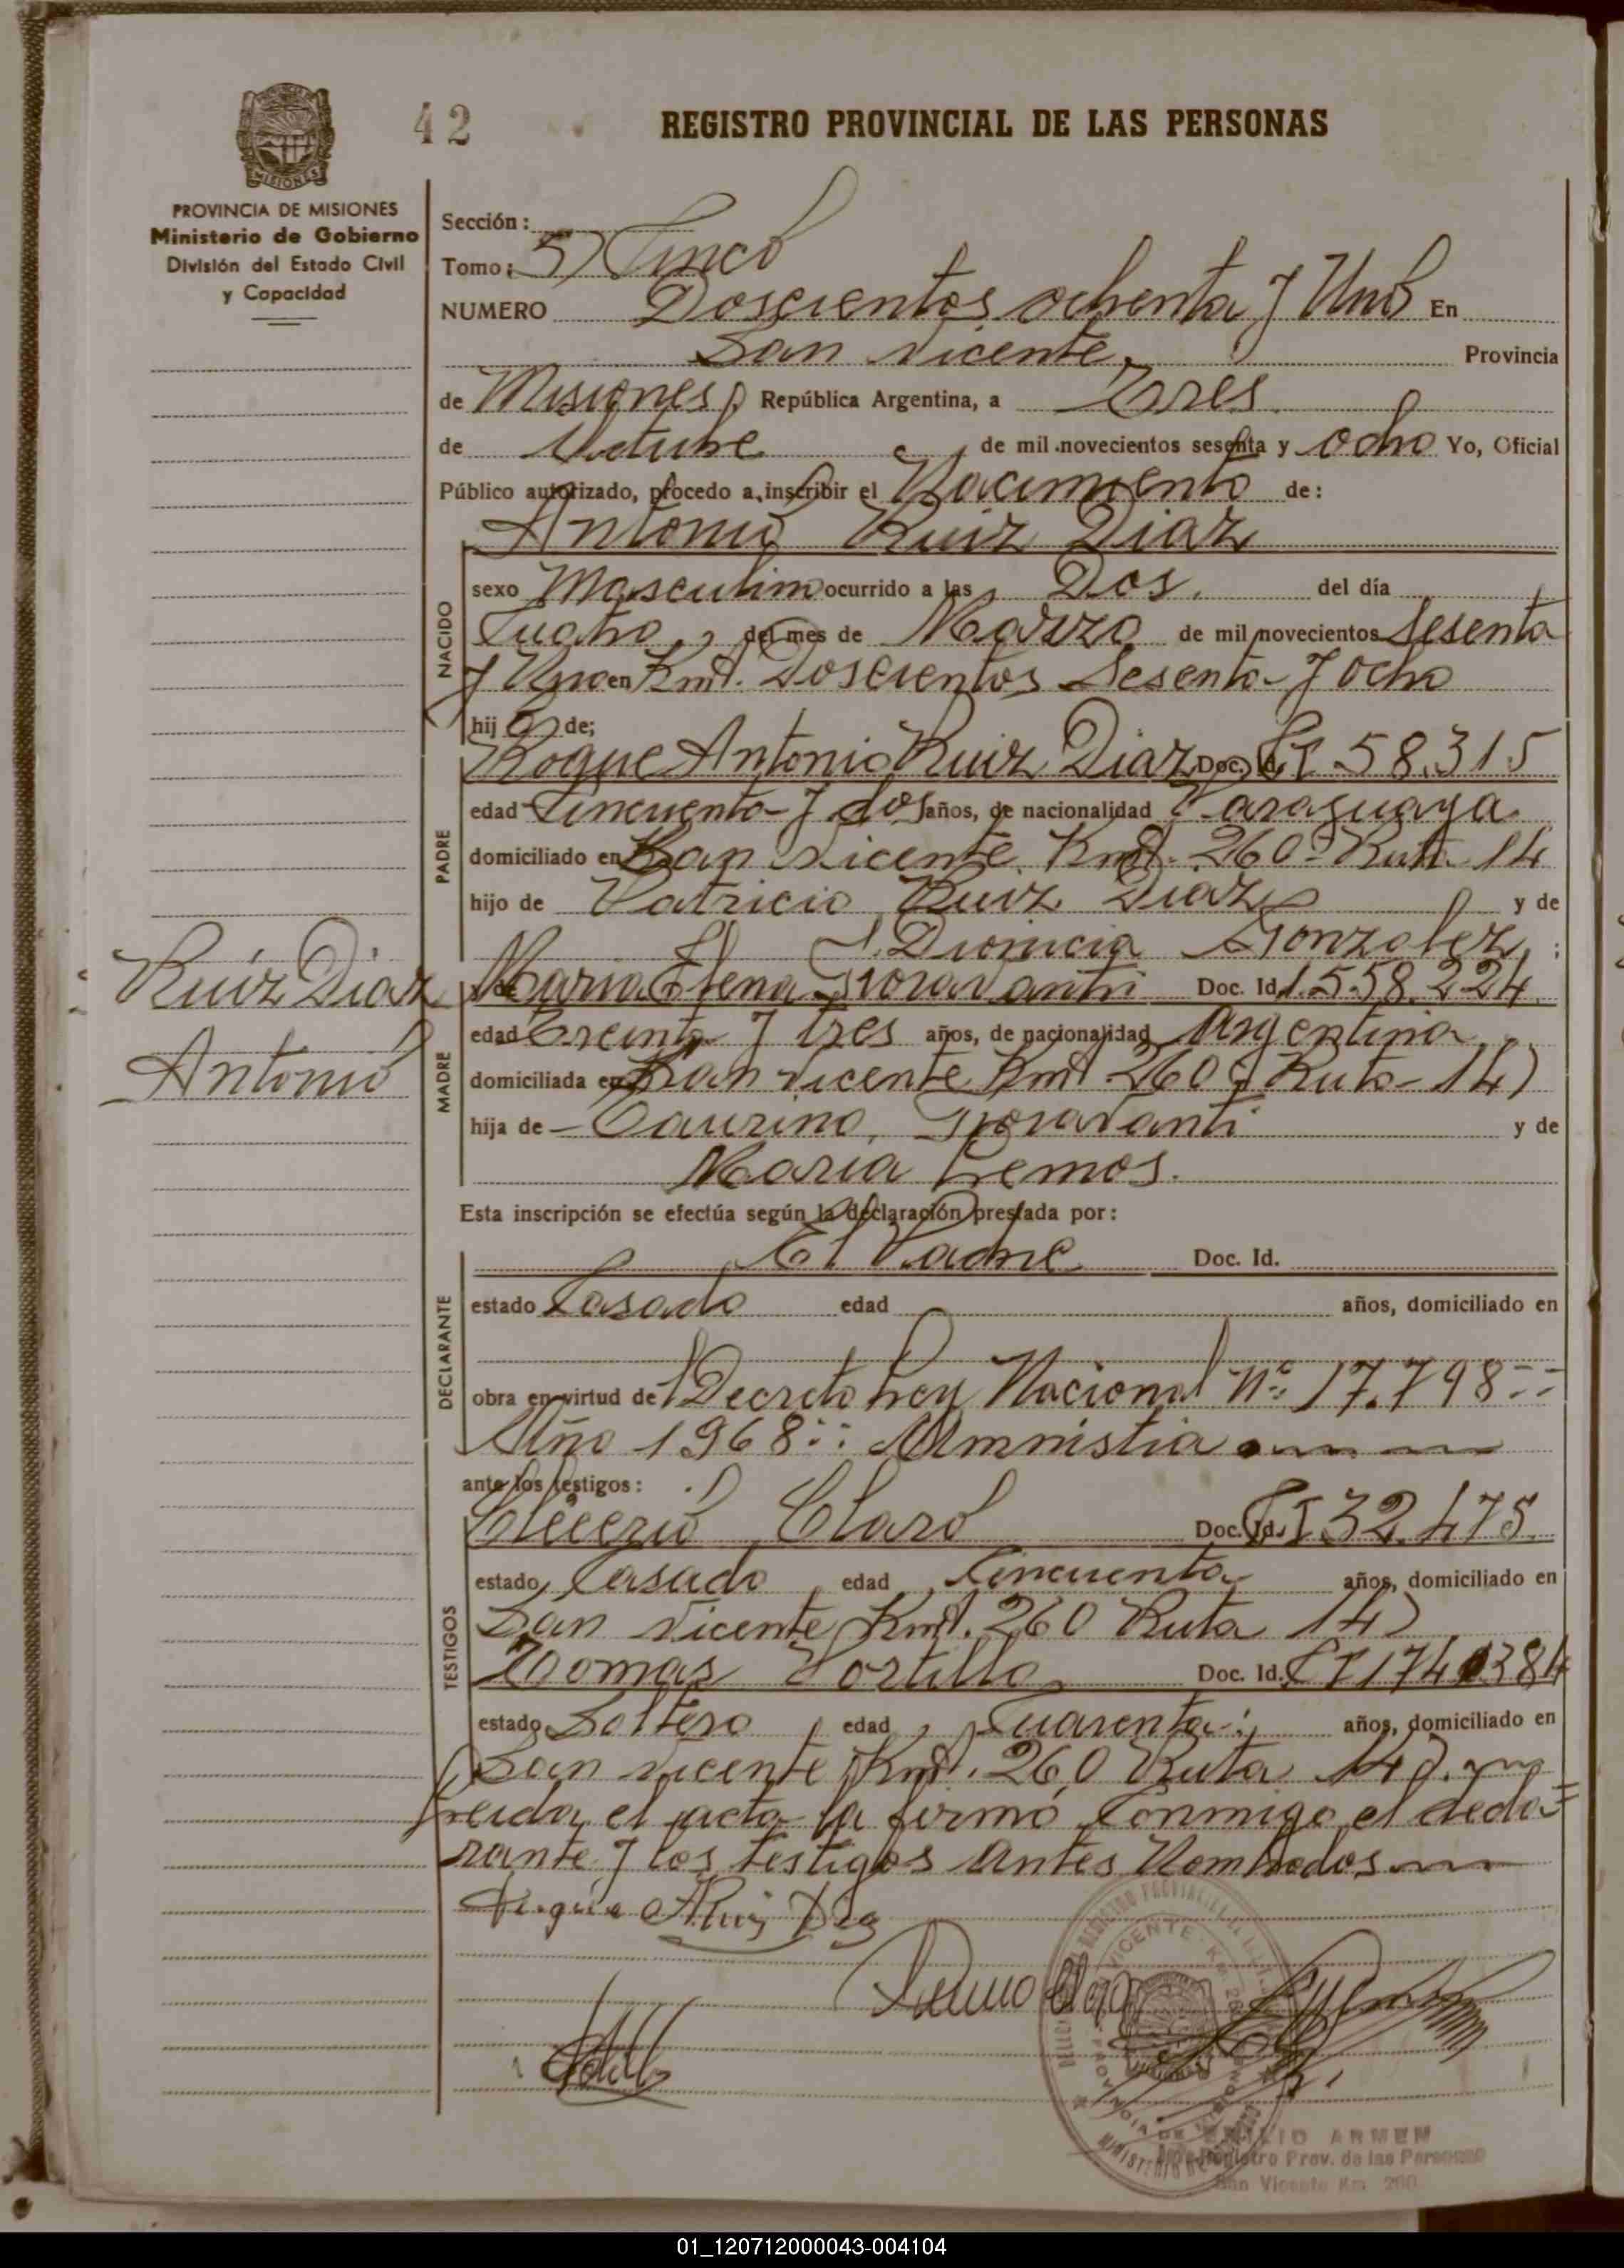 42
REGISTRO PROVINCIAL DE LAS PERSONAS
MISIONES
PROVINCIA DE MISIONES
Ministerio de Gobierno
División del Estado Civil
y Capacidad
Sección:
Tomo: 5) Cinco
NUMERO Doscientos ochenta y Uno En
San Vicente, Provincia
de Misiones, República Argentina, a Tres
de Octubre de mil novecientos sesenta y ocho Yo, Oficial
Público autorizado, procedo a inscribir el Nacimiento de:
Antonio Ruiz Diaz
NACIDO
sexo Masculino ocurrido a las Dos. del día
Cuatro, del mes de Marzo de mil novecientos Sesenta
y Uno en Kmt. Doscientos Sesenta y ocho
hij o de;
PADRE
Roque Antonio Ruiz Diaz Doc. Id. CI 58.315
edad Cincuenta y dos años, de nacionalidad Paraguaya
domiciliado en San Vicente Kmt. 260 - Ruta 14
hijo de Patricio Ruiz Diaz y de
Dionicia Gonzalez ;
Ruiz Diaz
Antonio
MADRE
y de Maria Elena Fioravanti Doc. Id. 1.558.224
edad Treinta y tres años, de nacionalidad Argentina
domiciliada en San Vicente Kmt. 260 Ruta - 14)
hija de Taurino, Fioravanti y de
Maria Lemos.
Esta inscripción se efectúa según la declaración prestada por:
DECLARANTE
El Padre Doc. Id.
estado Casado edad años, domiciliado en
obra en virtud de Decreto Ley Nacional Nº 17.798
Año 1968 Amnistia
ante los testigos:
TESTIGOS
Claro Doc. Id. CI 32.475
estado Casado edad Cincuenta años, domiciliado en
San Vicente Kmt. 260 Ruta 14)
Tomas Portillo Doc. Id. CI 174.384
estado Soltero edad, Cuarenta años, domiciliado en
San Vicente Kmt. 260 Ruta 14).
Leida el acta la firmó Conmigo el decla=
rante y los testigos Antes Nombrados
EMILIO ARMEN
Registro Prov. de las Personas
San Vicente Km. 260
01_120712000043-004104